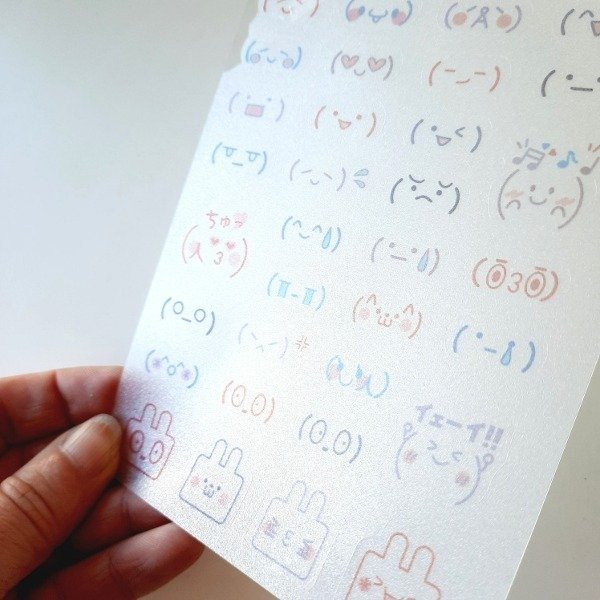 ちゅッ
イェーイ!!